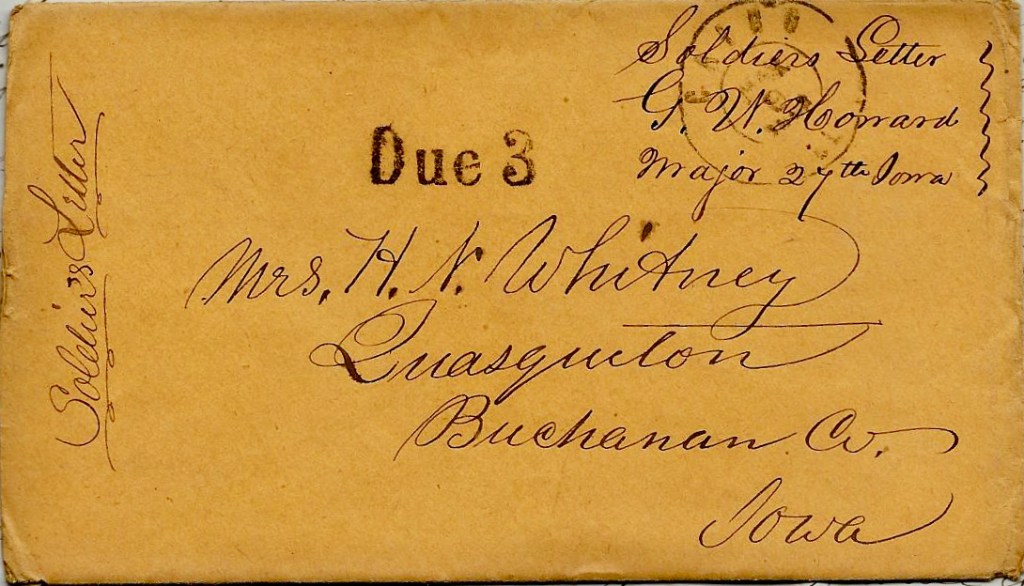 Soldiers Letter
G. W. Howard
Major 27th Iowa
Due 3
Soldiers Letter
Mrs. H. N. Whitney
Quasqueton
Buchanan Co.
Iowa